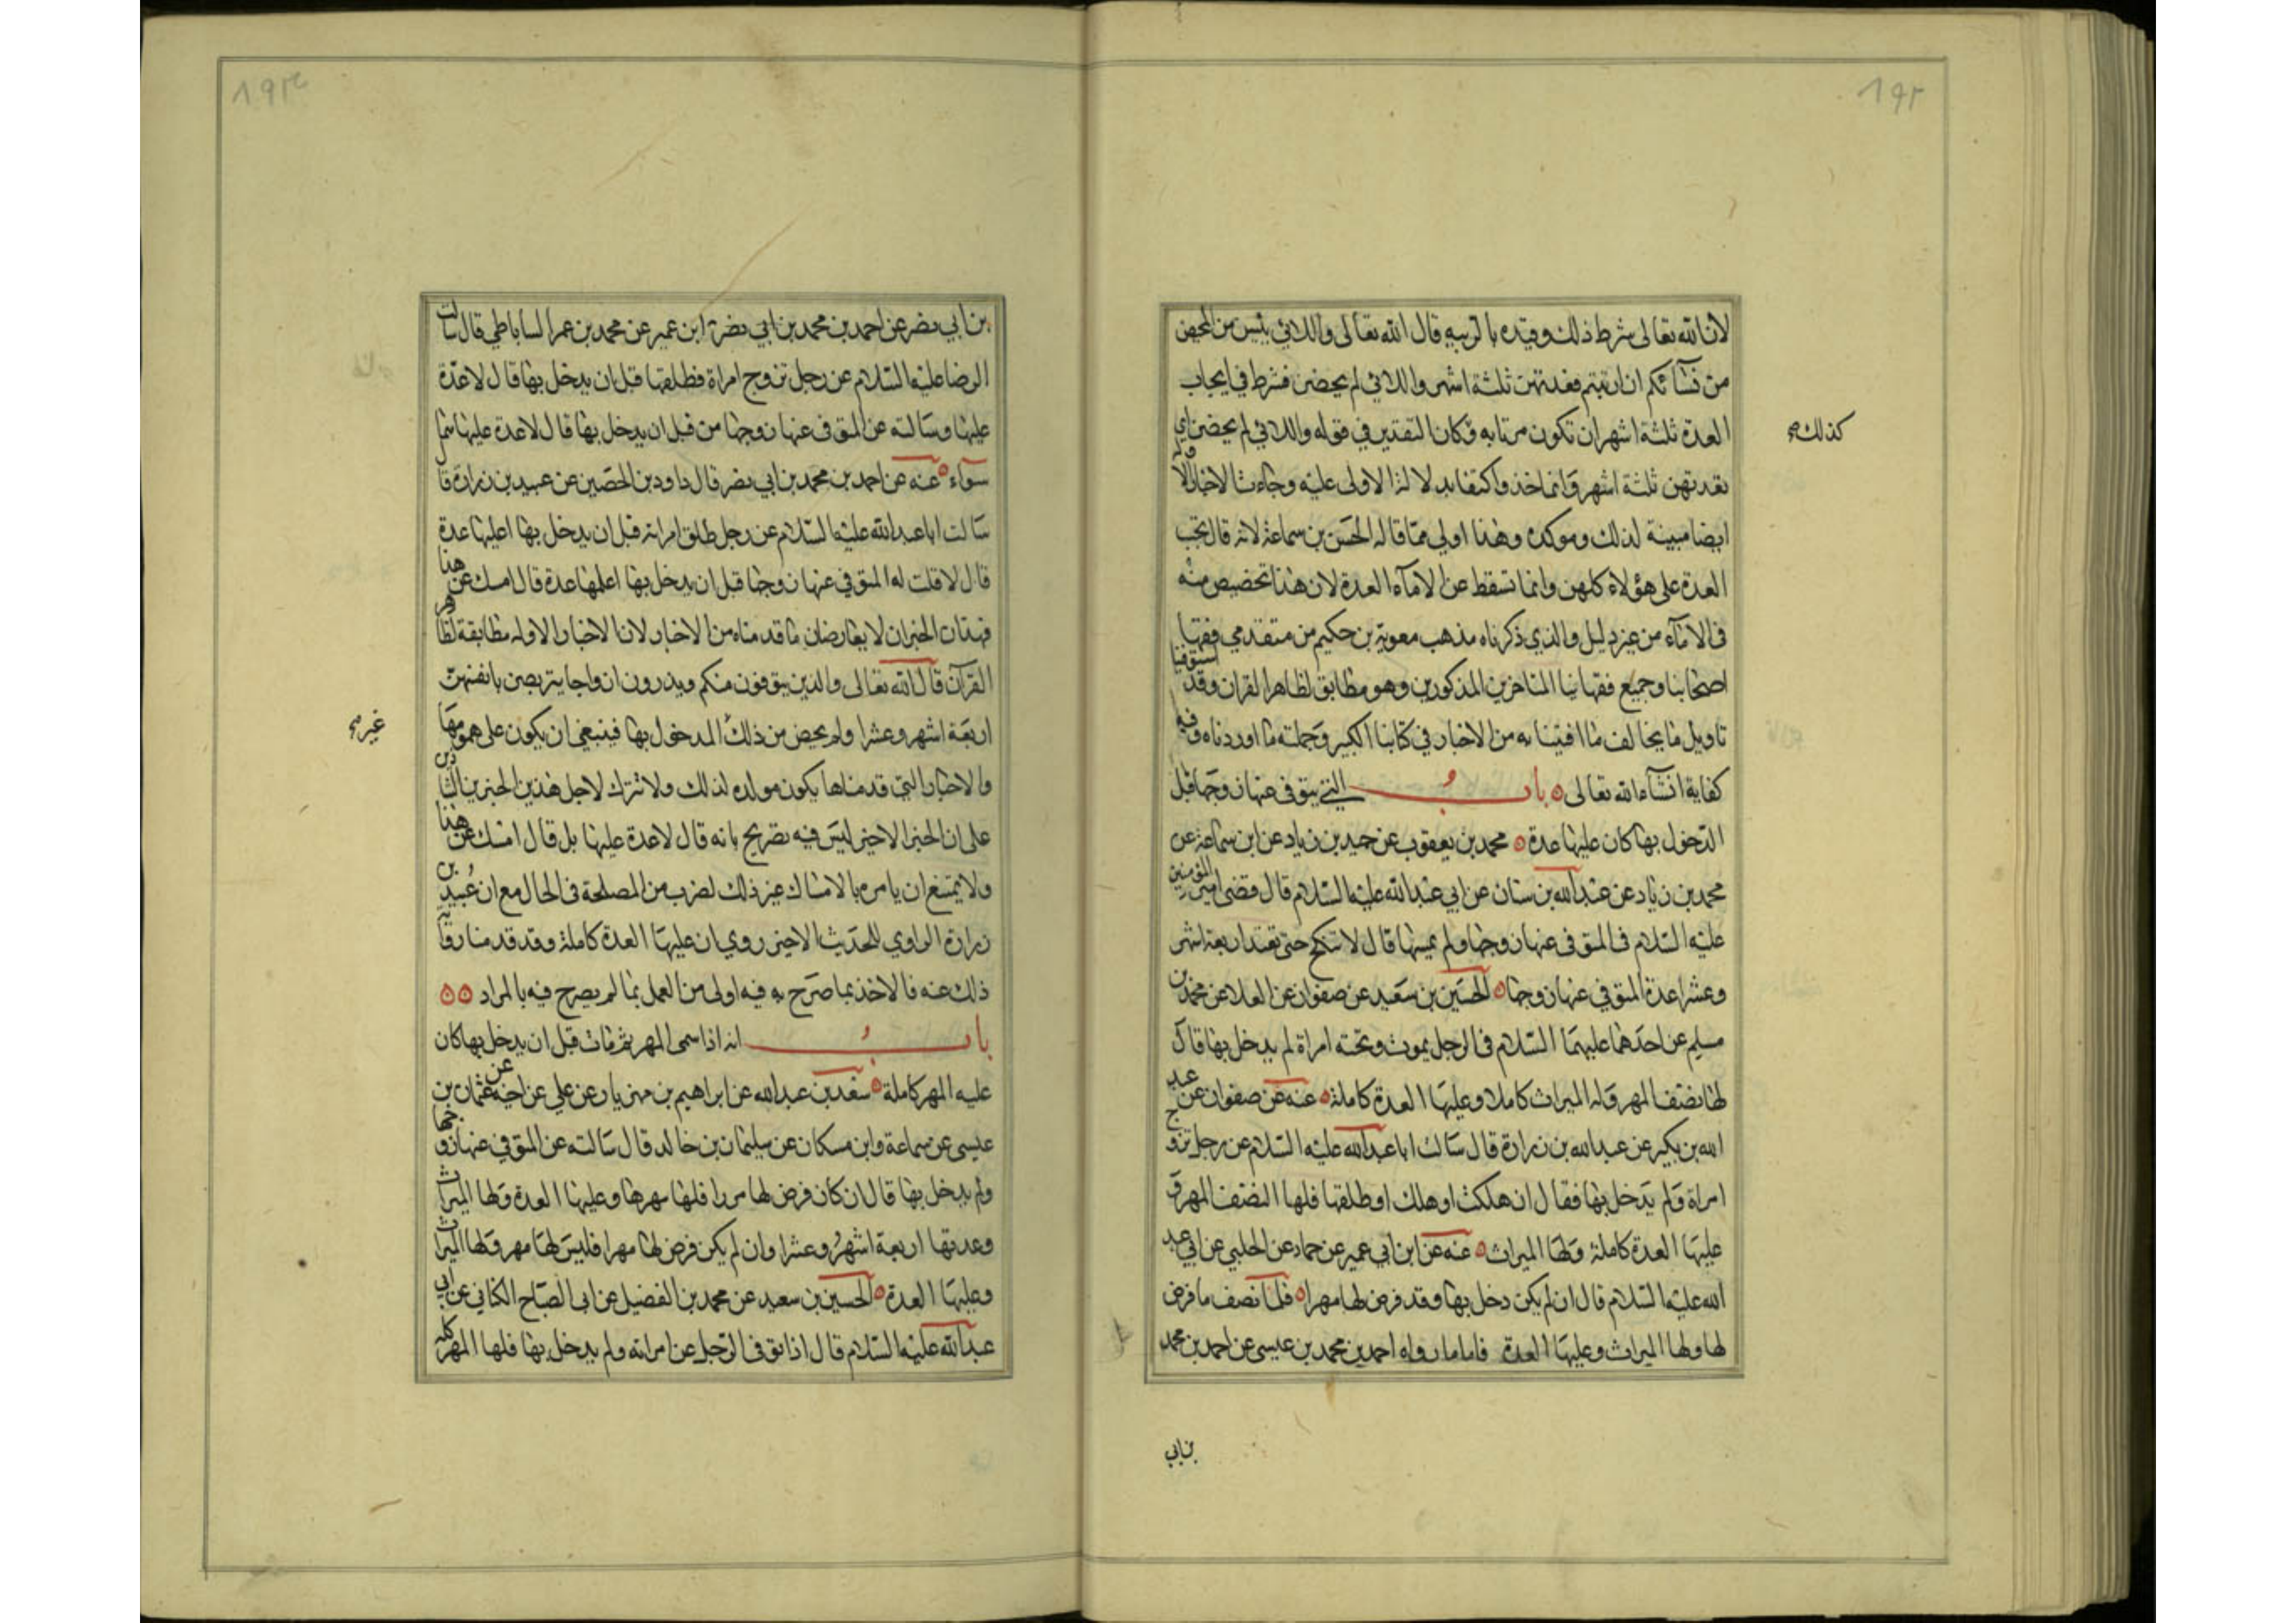 ١٩٢
لان الله تعالى شرط ذلك وقيده بالريبه قال الله تعالى واللائي يئسن من المحيض
من نسآئكم ان ارتبتم فعدتهن ثلثة اشهر واللائي لم يحضن فشرط في ايجاب
العدة ثلثة اشهر ان تكون مرتابه وكان التقدير في قوله واللائي لم يحضن اي
كذلك صح
فعدتهن ثلثة اشهر وانما حذف واكتفا بدلالة الاولى عليه وجاءت الاخبار
ايضا مبينة لذلك وموكده وهذا اولى مما قاله الحسن بن سماعة لانه قال تجب
العدة على هؤلاء كلهن وانما تسقط عن الامآء العدة لان هذا تخصيص منه
في الامآء من غير دليل والذي ذكرناه مذهب معوية بن حكيم من متقدمي فقهآ
اصحابنا وجميع فقهائنا المتاخرين المذكورين وهو مطابق لظاهر القران وقد استوفينا
تاويل ما يخالف ما افتينا به من الاخبار في كتابنا الكبير وجملته ما اوردناه وفيه
كفاية انشآء الله تعالى ٥ باب التي يتوفى عنها زوجها قبل
الدخول بها كان عليها عدة ٥ محمد بن يعقوب عن حميد بن زياد عن ابن سماعة عن
محمد بن زياد عن عبدالله بن سنان عن ابي عبدالله عليه السلام قال قضى امير المؤمنين
عليه السلام في المتوفى عنها زوجها ولم يمسها قال لا تنكح حتى تعتد اربعة اشهر
وعشرا عدة المتوفي عنها زوجها ٥ الحسين بن سعيد عن صفوان عن العلا عن محمد بن
مسلم عن احدهما عليهما السلام في الرجل يموت وتحته امراة لم يدخل بها قال
لها نصف المهر وله الميراث كاملا وعليها العدة كاملة ٥ عنه عن صفوان عن عبد
الله بن بكير عن عبيدالله بن زرارة قال سالت ابا عبدالله عليه السلام عن رجل تزوج
امراة ولم يدخل بها فقال ان هلكت او هلك او طلقها فلها النصف المهر و
عليها العدة كاملة ولها الميراث ٥ عنه عن ابن ابي عمير عن حماد عن الحلبي عن ابي عبد
الله عليه السلام قال ان لم يكن دخل بها وقد فرض لها مهرا ٥ فلها نصف ما فرض
لها ولها الميراث وعليها العدة فاما ما رواه احمد بن محمد بن عيسى عن احمد بن محمد
بن ابي
١٩٣
بن ابي نصر عن احمد بن محمد بن ابي نصر ابن عمير عن محمد بن عمر الساباطي قال سالت
الرضا عليه السلام عن رجل تزوج امراة فطلقها قبل ان يدخل بها قال لا عدة
عليها وسالته عن المتوفى عنها زوجها من قبل ان يدخل بها قال لا عدة عليها هما
سوآء ٥ عنه عن احمد بن محمد بن ابي نصر قال داود بن الحصين عن عبيد بن زرارة قا
سالت ابا عبدالله عليه السلام عن رجل طلق امراته قبل ان يدخل بها اعليها عدة
قال لا قلت له المتوفي عنها زوجها قبل ان يدخل بها اعليها عدة قال امسك عن هذا
فهذان الخبران لا يعارضان ما قدمناه من الاخبار لان الاخبار الاوله مطابقة لظاهر
القرآن قال الله تعالى والذين يتوفون منكم ويذرون ازواجا يتربصن بانفسهن
اربعة اشهر وعشرا ولم يخص من ذلك المدخول بها فينبغي ان يكون على عمومها
غير صح
والاخبار التي قدمناها يكون موكده لذلك ولا تترك لاجل هذين الخبرين
على ان الخبر الاخير ليس فيه تصريح بانه قال لا عدة عليها بل قال امسك عن هذا
ولا يمتنع ان يامره بالامساك عن ذلك لضرب من المصلحة في الحال مع ان عبيد بن
زرارة الراوي للحديث الاخير روي ان عليها العدة كاملة وقد قدمنا رواية
ذلك عنه فالاخذ بما صرح به فيه اولى من العمل بما لم يصرح فيه بالمراد ٥٥
باب انه اذا سمى المهر ثم مات قبل ان يدخل بها كان
عليه المهر كاملة ٥ سعد بن عبدالله عن ابراهيم بن مهزيار عن علي عن اخيه عن عثمان بن
عيسى عن سماعة وابن مسكان عن سليمان بن خالد قال سالته عن المتوفي عنها زوجها
ولم يدخل بها قال ان كان فرض لها مهرا فلها مهرها وعليها العدة ولها الميراث
وعدتها اربعة اشهر وعشرا وان لم يكن فرض لها مهرا فليس لها مهر ولها الميراث
وعليها العدة ٥ الحسين بن سعيد عن محمد بن الفضيل عن ابى الصباح الكناني عن ابي
عبدالله عليه السلام قال اذا توفى الرجل عن امراته ولم يدخل بها فلها المهر كله